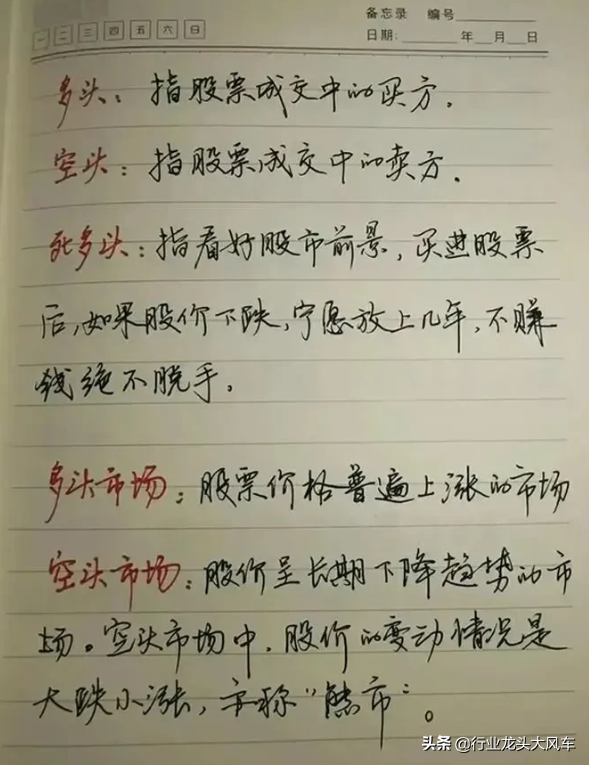 备忘录 编号
一 二 三 四 五 六 日 日期: 年 月 日
多头：指股票成交中的买方.
空头：指股票成交中的卖方.
死多头：指看好股市前景,买进股票
后,如果股价下跌,宁愿放上几年,不赚
钱绝不脱手.
多头市场：股票价格普遍上涨的市场
空头市场：股价呈长期下降趋势的市
场。空头市场中,股价的变动情况是
大跌小涨,亦称“熊市”。
头条 @行业龙头大风车